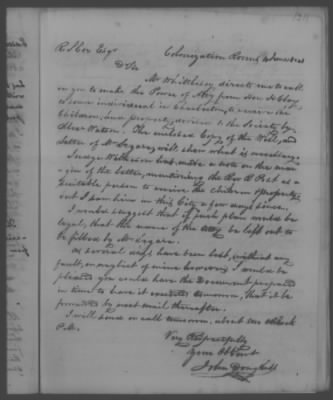 R S Cox Esqr Colonization Rooms
D Sir
Mr Whittlesey directs me to call
on you to make the Power of Atty from Hon H Clay
to some individual in Charleston, to receive the
Children, and property, devised to the Society by
Watson. The enclosed Copy of the Will, and
Letter of Mr Legare, will shew what is necessary.
Judge Wilkeson has made a note on the mar-
gin of the letter, mentioning the Rev as a
Suitable person to receive the Children & Property
but I saw him in this City a few days since.
I would suggest that if such plan would be
legal, that the name of the Atty be left out to
be filled by Mr Legare.
As several days have been lost, without any
fault, or neglect of mine however, I would be
pleased you could have the Document prepared
in time to have it executed tomorrow, that it be
forwarded by next mail thereafter.
I will send or call tomorrow, about two o'clock
P.M.
Very Respectfully
Your Obt Svt
John